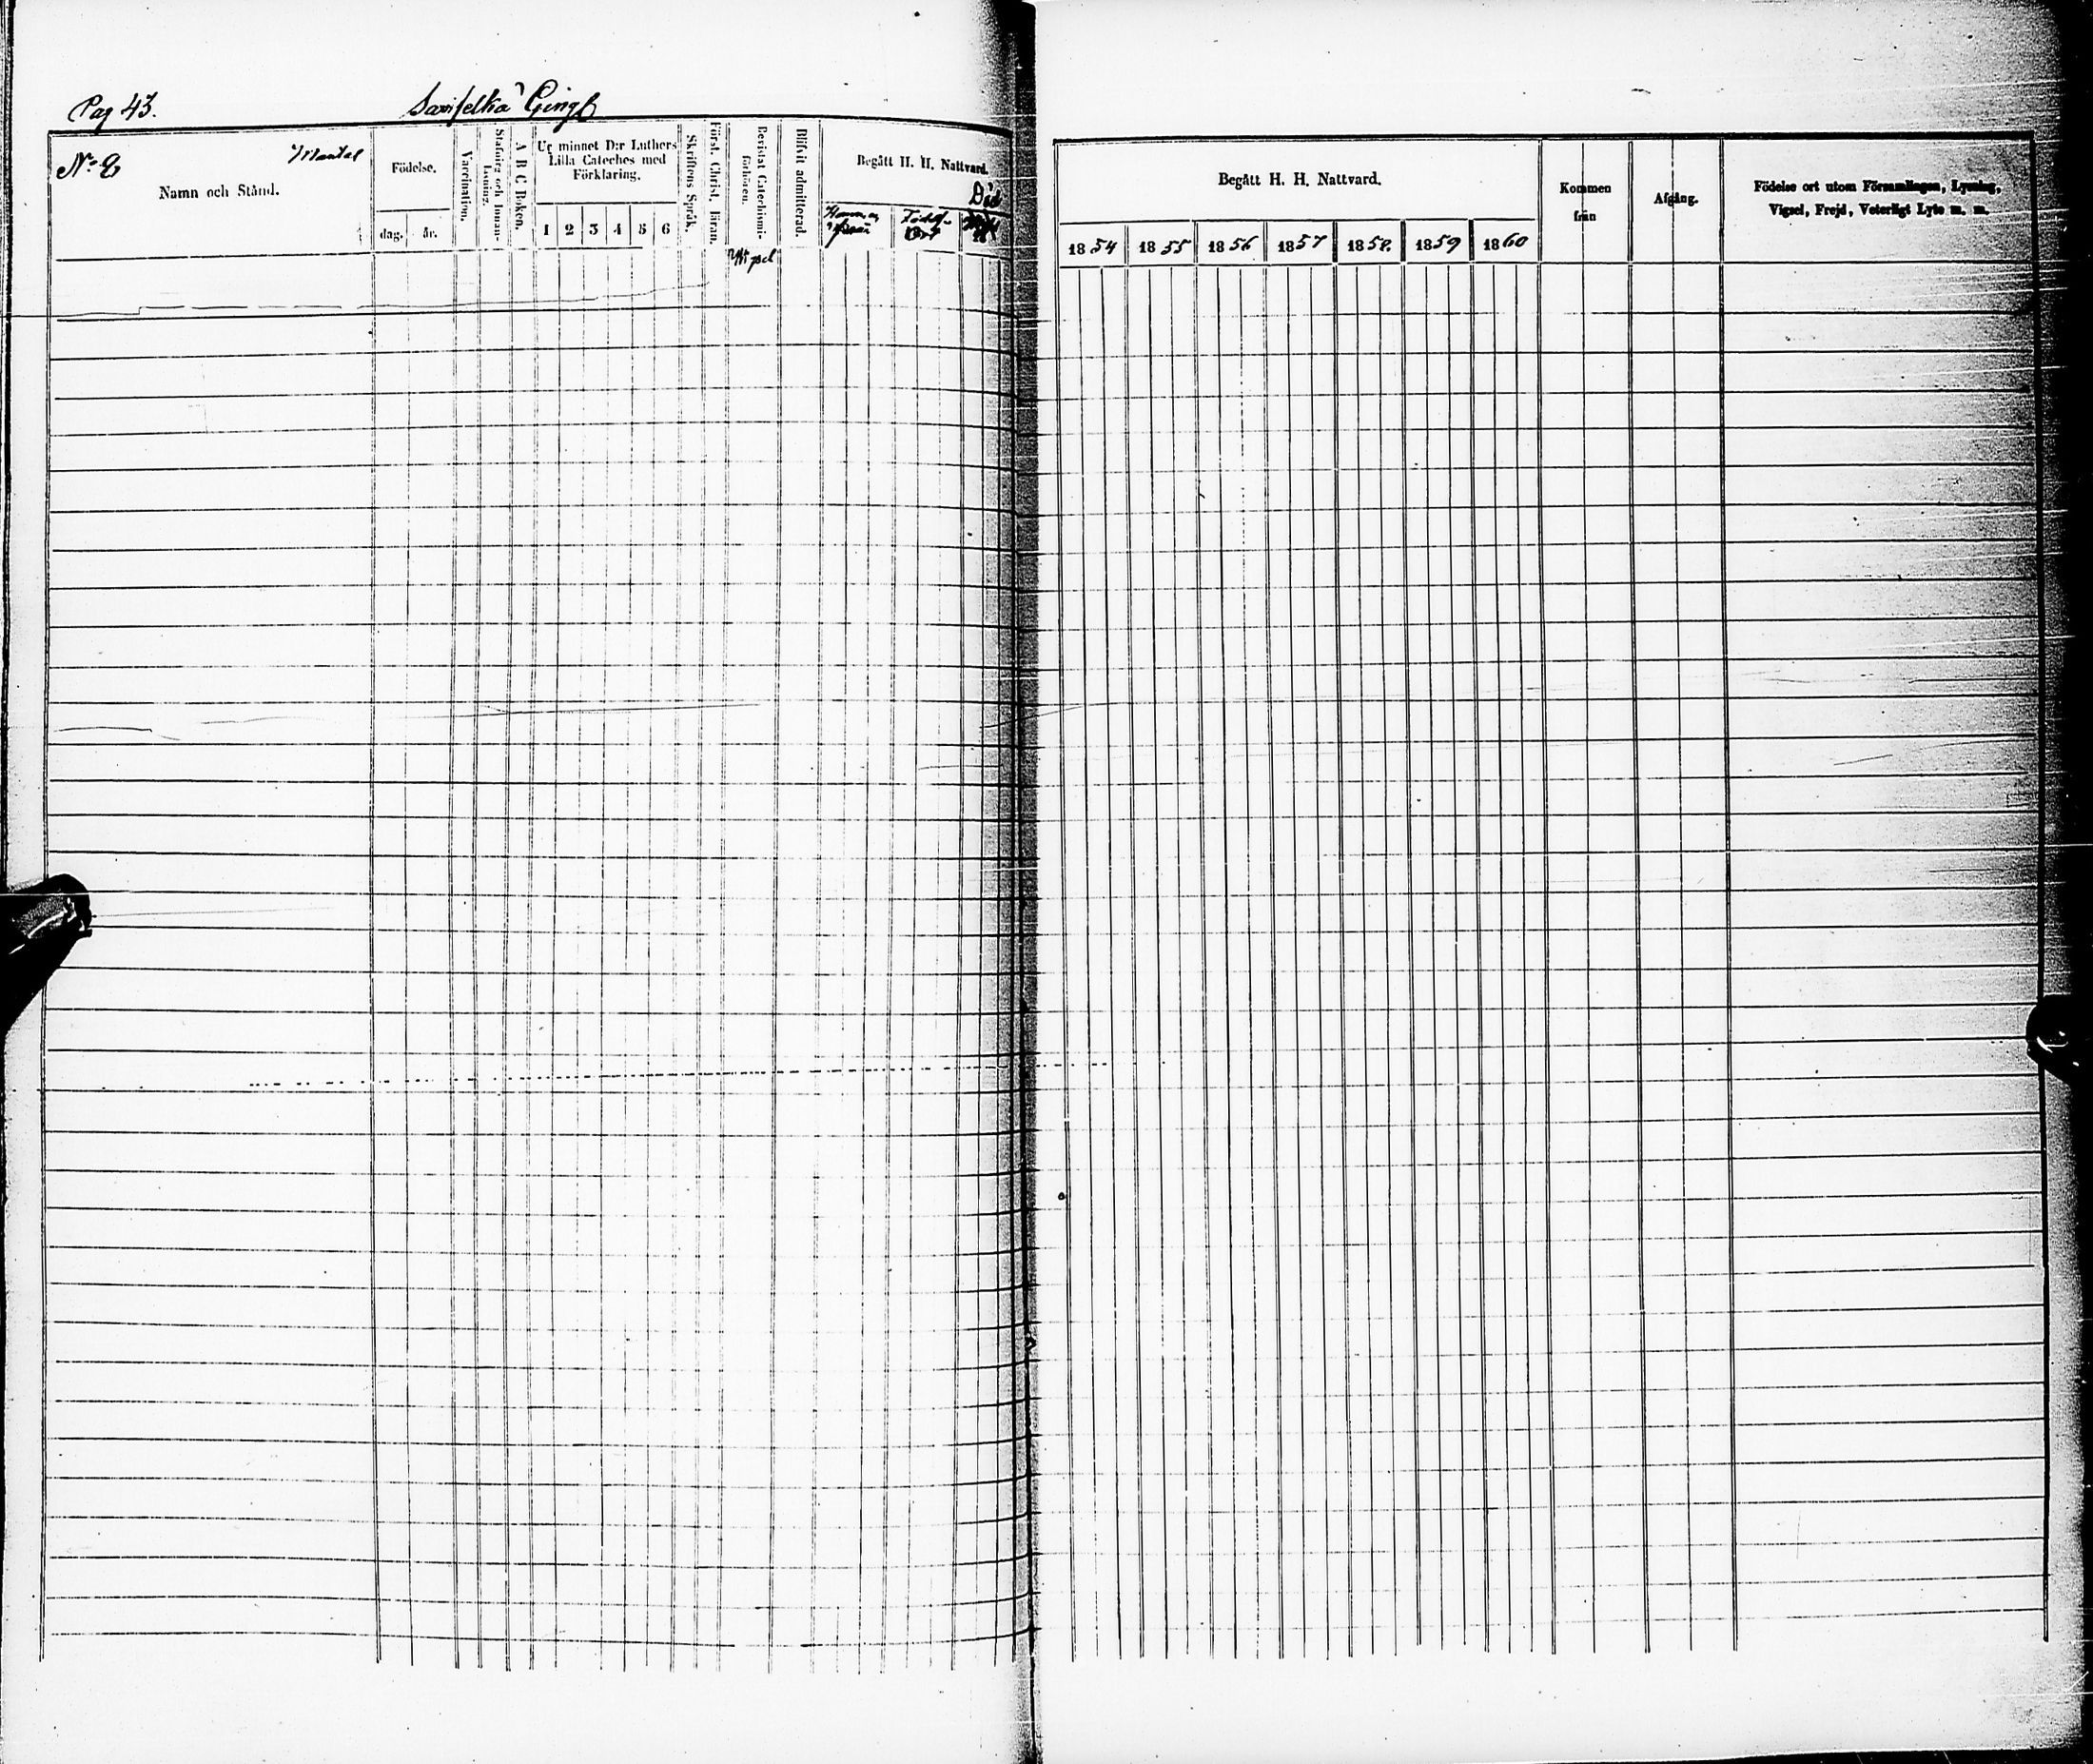 Pag 43.
Nº 2 Mantal
Namn och Stånd.
Födelse.
dag. år.
Vaccination.
Stafning och Innan-
läsning.
A B C Boken.
Ur minnet D:r Luthers
Lilla Cateches med
Förklaring.
1 2 3 4 5 6
Skriftens Språk.
Först. Christ. läran.
Bevistat Catechismi-
förhören.
Vigsel
Blifvit admitterad.
Begått H. H. Nattvard.
Död
Begått H. H. Nattvard.
1854 1855 1856 1857 1858. 1859 1860
Kommen
från
Afgång.
Födelse ort utom Församlingen, Lysning,
Vigsel, Frejd, Veterligt Lyte m. m.